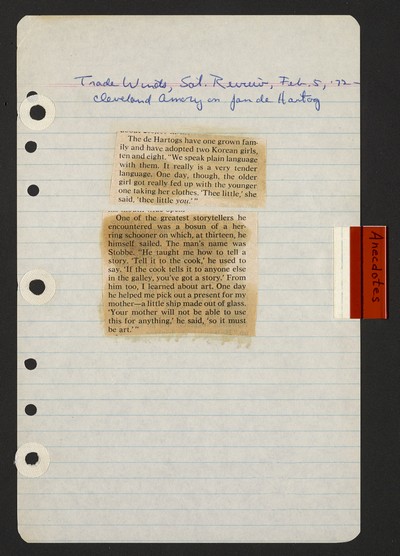 Trade Winds, Sat. Review, Feb. 5, '72 -
Cleveland Amory on Jan de Hartog
The de Hartogs have one grown fam-
ily and have adopted two Korean girls,
ten and eight. "We speak plain language
with them. It really is a very tender
language. One day, though, the older
girl got really fed up with the younger
one taking her clothes. 'Thee little,' she
said, 'thee little you.' "
One of the greatest storytellers he
encountered was a bosun of a her-
ring schooner on which, at thirteen, he
himself sailed. The man's name was
Stobbe. "He taught me how to tell a
story. 'Tell it to the cook,' he used to
say. 'If the cook tells it to anyone else
in the galley, you've got a story.' From
him too, I learned about art. One day
he helped me pick out a present for my
mother—a little ship made out of glass.
'Your mother will not be able to use
this for anything,' he said, 'so it must
be art.' "
Anecdotes